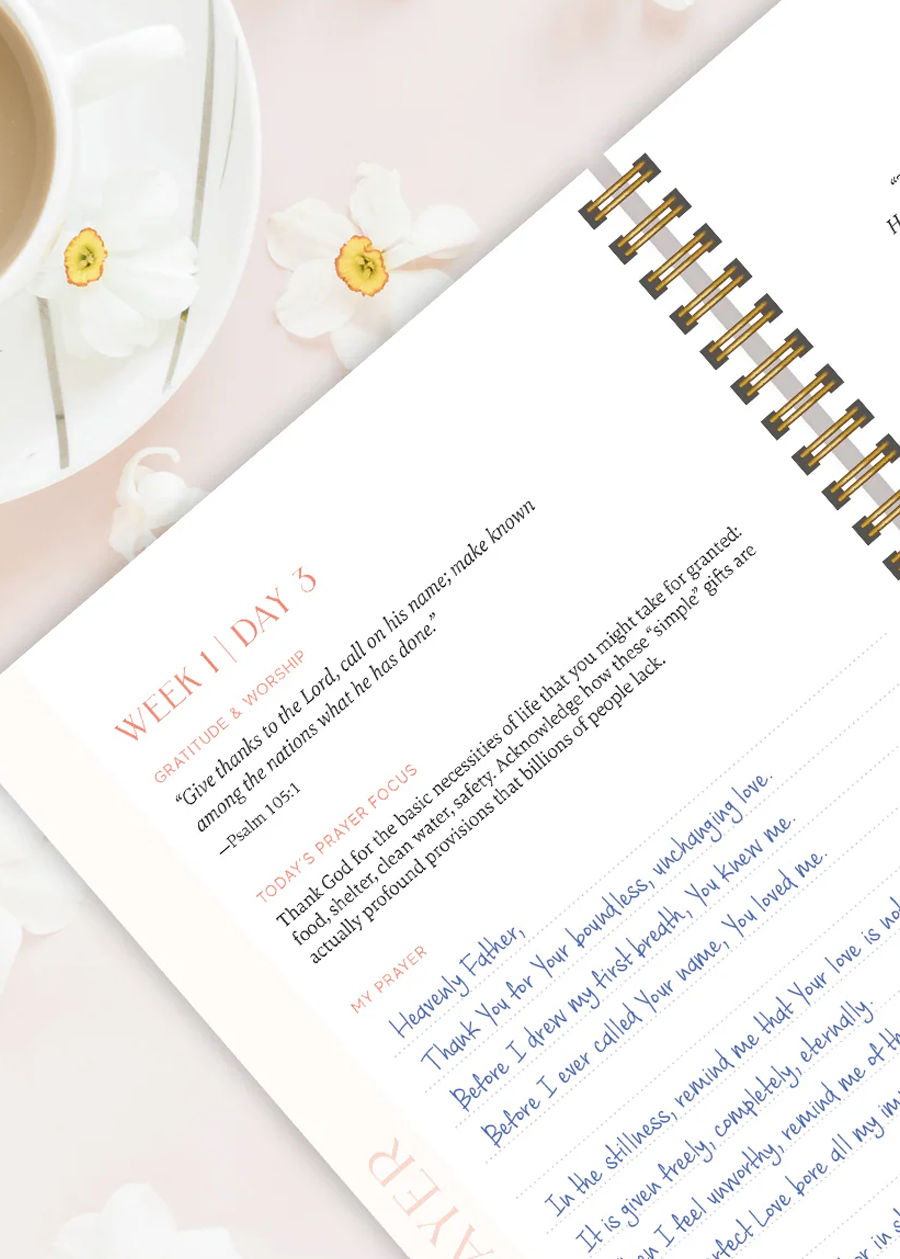 WEEK 1 | DAY 3
GRATITUDE & WORSHIP
“Give thanks to the Lord, call on his name; make known
among the nations what he has done.”
—Psalm 105:1
TODAY’S PRAYER FOCUS
Thank God for the basic necessities of life that you might take for granted:
food, shelter, clean water, safety. Acknowledge how these “simple” gifts are
actually profound provisions that billions of people lack.
MY PRAYER
Heavenly Father,
Thank You for Your boundless, unchanging love.
Before I drew my first breath, You knew me.
Before I ever called Your name, You loved me.
In the stillness, remind me that Your love is
It is given freely, completely, eternally.
I feel unworthy, remind me of
Love bore all my